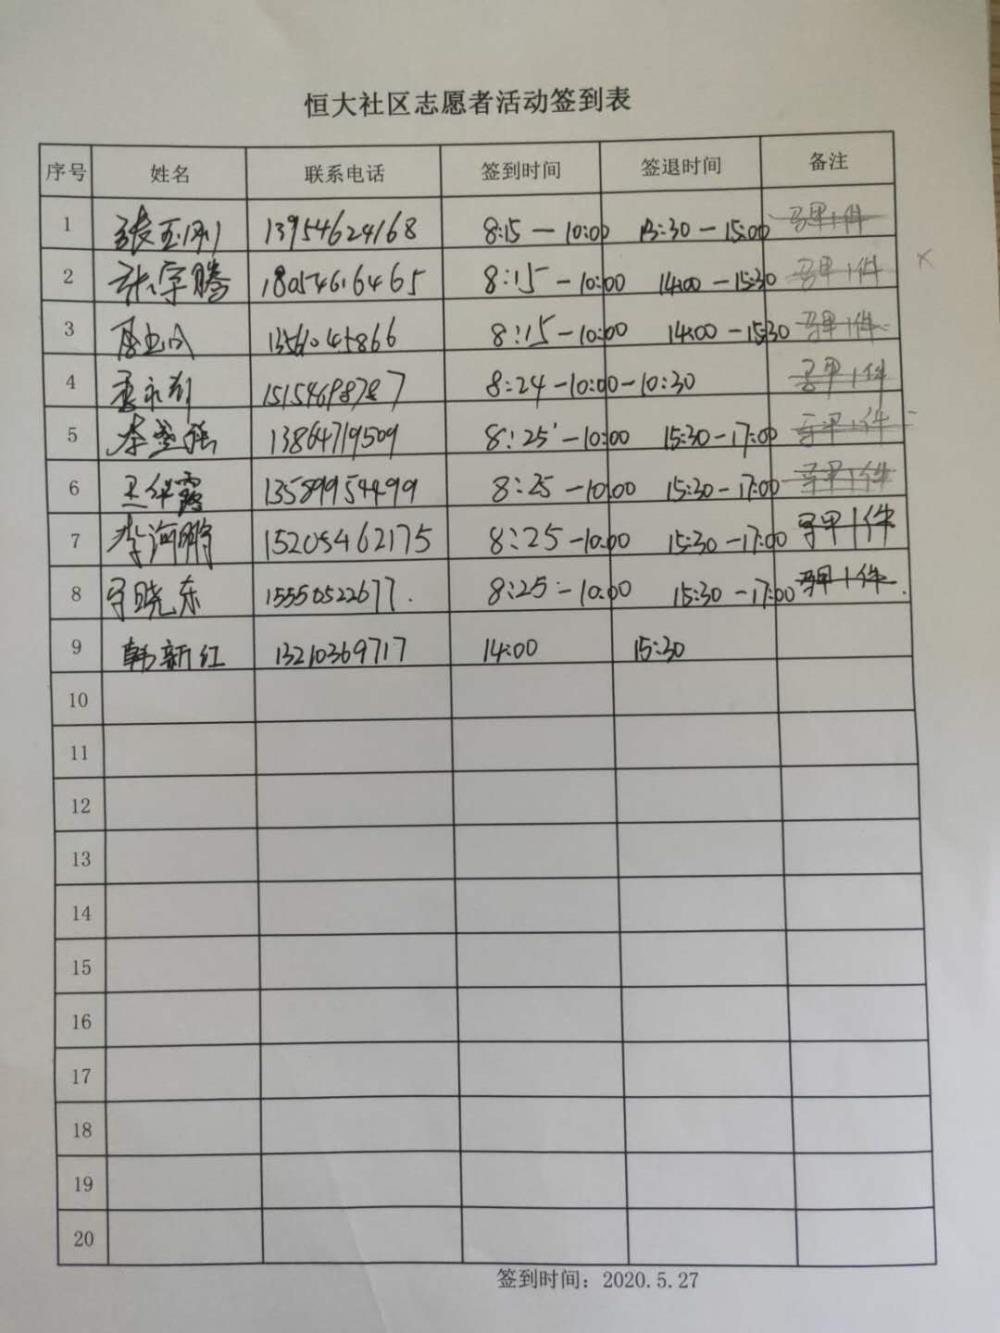 恒大社区志愿者活动签到表
序号 姓名 联系电话 签到时间 签退时间 备注
1 张玉刚 13954624168 8:15 — 10:00 13:30 — 15:00 马甲1件
2 许字腾 18054616465 8:15 — 10:00 14:00 — 15:30 马甲1件 ×
3 13561045866 8:15 — 10:00 14:00 — 15:30 马甲1件
4 李永利 15154698787 8:24 — 10:00 — 10:30 马甲1件
5 13864719509 8:25 — 10:00 15:30 — 17:00 马甲1件
6 王华霞 13589954499 8:25 — 10:00 15:30 — 17:00 马甲1件
7 李海鹏 15205462175 8:25 — 10:00 15:30 — 17:00 马甲1件
8 晓东 15550522677. 8:25 — 10:00 15:30 — 17:00 马甲1件.
9 韩新红 13210369717 14:00 15:30
10
11
12
13
14
15
16
17
18
19
20
签到时间：2020.5.27